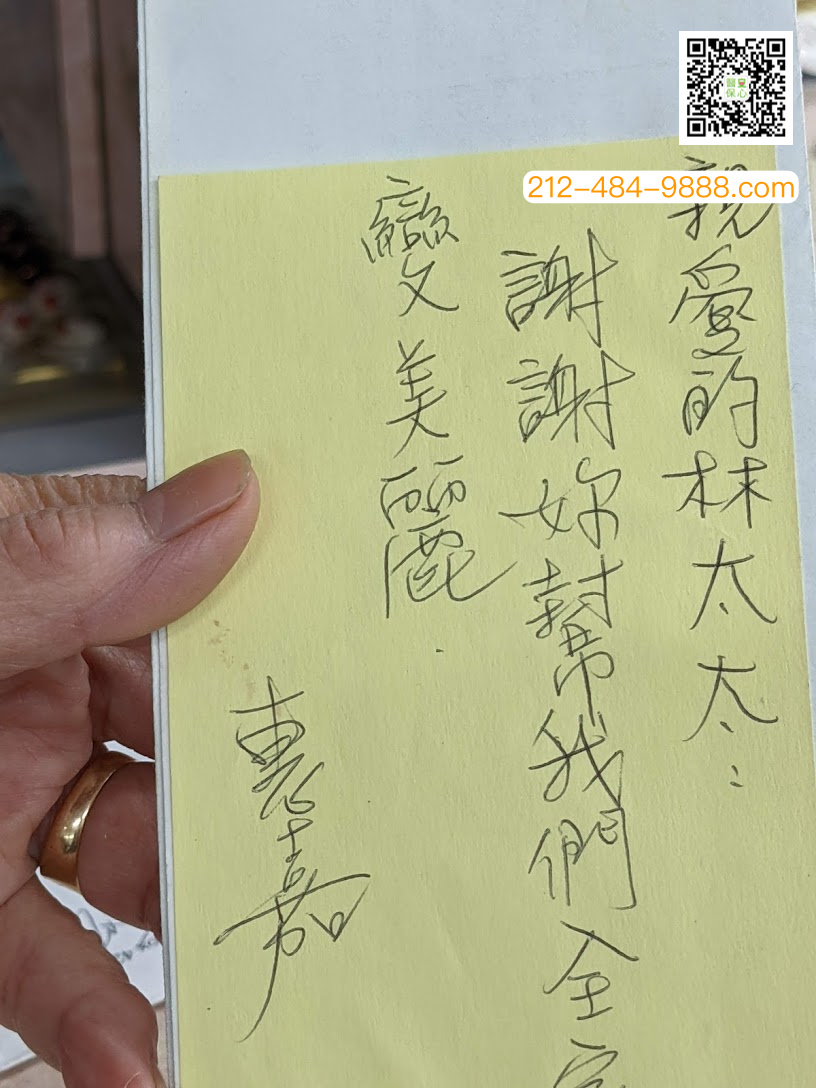 212-484-9888.com
親愛的林太太:
謝謝妳幫我們全
變美麗.
惠嘉